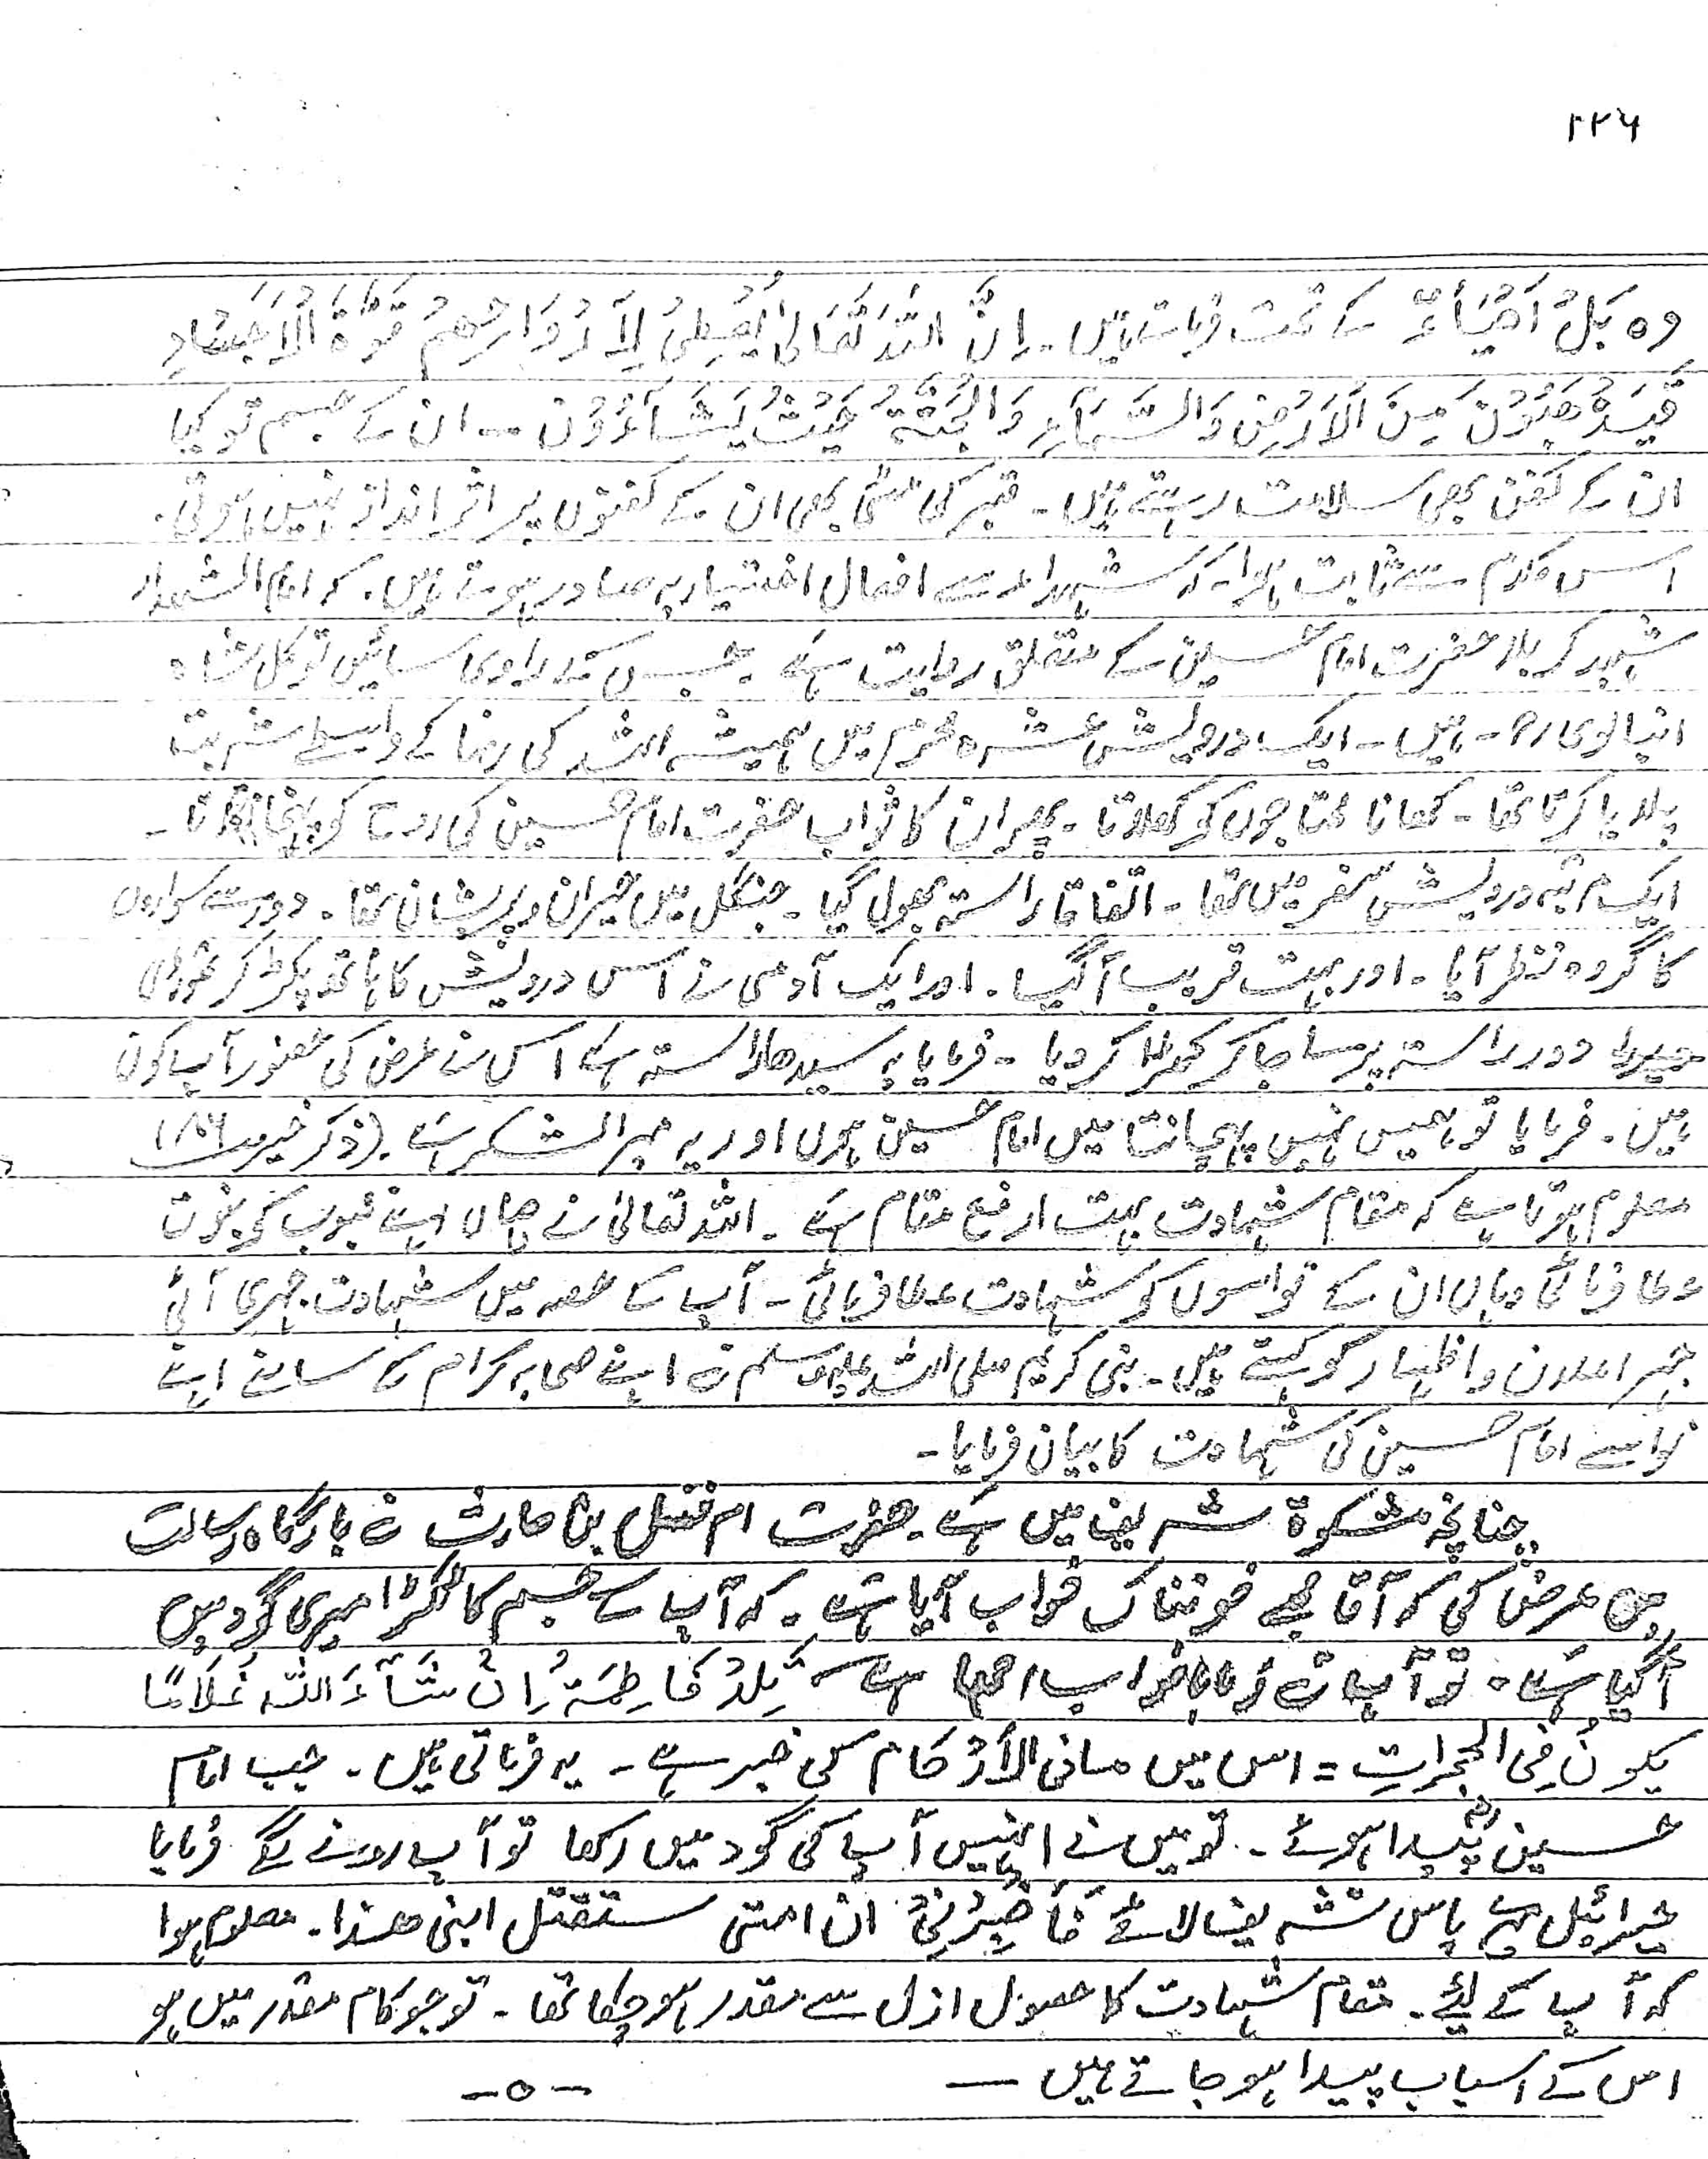 ۲۲۶
وہ بَلْ اَحْیَآءٌ کے تحت فرماتے ہیں۔ اِنَّ اللّٰہَ تَعَالیٰ یُعْطِیْ لِاَرْوَاحِھِمْ قُوَّۃَ الْاَجْسَادِ
فَیَذْھَبُوْنَ مِنَ الْاَرْضِ وَالسَّمَآءِ وَالْجَنَّۃِ حَیْثُ یَشَآءُوْنَ -- ان کے جسم تو کیا
ان کے کفن بھی سلامت رہتے ہیں۔ قبر کی مٹی بھی ان کے کفنوں پر اثر انداز نہیں ہوتی۔
اس کلام سے ثابت ہوا۔ کہ شہداء سے افعال اختیاریہ صادر ہوتے ہیں۔ کہ امام الشہداء
شہید کربلا حضرت امام حسین کے متعلق روایت ہے۔ جس کے راوی سائیں توکل شاہ
انبالوی رح۔ ہیں۔ ایک درویش عشرہ محرم میں ہمیشہ اللہ کی رضا کے واسطے شربت
پلایا کرتا تھا۔ کھانا محتاجوں کو کھلاتا۔ پھر ان کا ثواب حضرت امام حسین کی روح کو پہنچاتا۔
ایک مرتبہ درویش سفر میں تھا۔ اتفاقاً راستہ بھول گیا۔ جنگل میں حیران و پریشان تھا۔ دور سے سواروں
کا گروہ نظر آیا۔ اور بہت قریب آگیا۔ اور ایک آدمی نے اس درویش کا ہاتھ پکڑ کر تھوڑی
دور راستہ پر جا کر کھڑا کر دیا۔ فرمایا یہ سیدھا راستہ ہے اس نے عرض کی حضور آپ کون
ہیں۔ فرمایا تو ہمیں نہیں پہچانتا میں امام حسین ہوں اور یہ میرا لشکر ہے۔ (ذکر خیر
معلوم ہوتا ہے کہ مقام شہادت بہت ارفع مقام ہے۔ اللہ تعالیٰ نے جہاں اپنے محبوب کو نبوت
عطا فرمائی وہاں ان کے نواسوں کو شہادت عطا فرمائی۔ آپ کے حصہ میں شہادت جہری آئی
جہر اعلان و اظہار کو کہتے ہیں۔ نبی کریم صلی اللہ علیہ وسلم نے اپنے صحابہ کرام کے سامنے اپنے
نواسے امام حسین کی شہادت کا بیان فرمایا۔
چنانچہ مشکوٰۃ شریف میں ہے۔ حضرت ام فضل بن حارث نے بارگاہ رسالت
میں عرض کی کہ آقا مجھے خوفناک خواب آیا ہے۔ کہ آپ کے جسم کا ٹکڑا میری گود میں
آگیا ہے۔ تو آپ نے فرمایا خواب اچھا ہے۔ تَلِدُ فَاطِمَۃُ اِنْ شَآءَ اللّٰہ غُلَامًا
یکونُ فِی الحجراتِ = اس میں مافی الْاَرْحام کی خبر ہے۔ یہ فرماتی ہیں۔ جب امام
حسین رض پیدا ہوئے۔ تو میں نے انہیں آپ کی گود میں رکھا تو آپ رونے لگے فرمایا
جبرائیل میرے پاس تشریف لائے فَاَخْبَرَنِیْ ان امتی ستقتل ابنی ھذا۔ معلوم ہوا
کہ آپ کے لیئے۔ مقام شہادت کا حصول ازل سے مقدر ہو چکا تھا۔ تو جو کام مقدر میں ہو
اس کے اسباب پیدا ہو جاتے ہیں — -ہ-